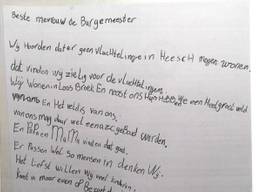 Beste mevrouw de Burgemeester
Wij Hoorden dat er geen vluchtelingen in Heesch mogen wonen.
dat vinden wij zielig voor de vluchtelingen.
Wij Wonen in Loos Broek En naast ons Huis een Hoop groot veld
van ons En Het veld is van ons.
van ons mag daar wel een azc gebouwd worden.
En Pap en MaMa vinden dat goed.
Er Passen Wel 50 mensen in denken Wij.
Het Liefst willen Wij veel kinderen.
kunt u maar even of